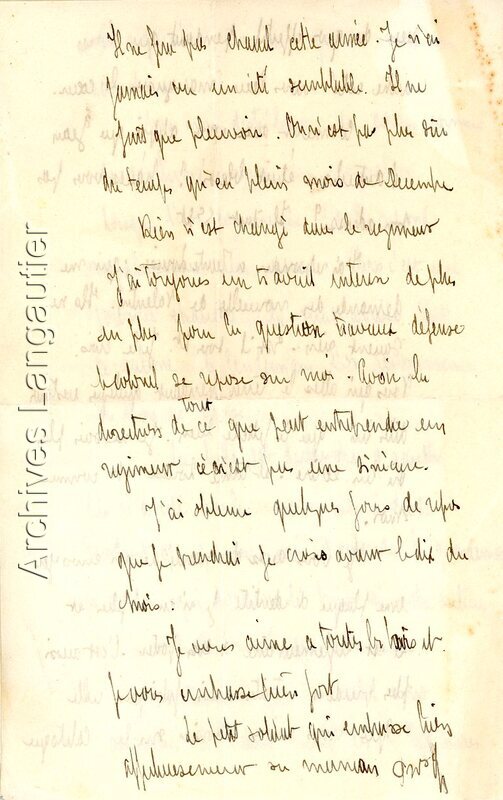 Il ne fera pas chaud cette année. Je n'ai
jamais vu un été semblable. Il ne
fait que pleuvoir. On n'est pas plus sûr
du temps qu'en plein mois de Decembre
Rien n'est changé dans le regiment
J'ai toujours un travail intense de plus
en plus pour la question travaux défense
le colonel se repose sur moi. Avoir la
direction de tout ce que peut entreprendre un
regiment ce n'est pas une sinecure.
J'ai obtenu quelques jours de repos
que je prendrai je crois avant le dix du
mois.
Je vous aime a toutes les trois et
je vous embrasse bien fort
Le petit soldat qui embrasse bien
affectueusement sa maman
Archives Langautier